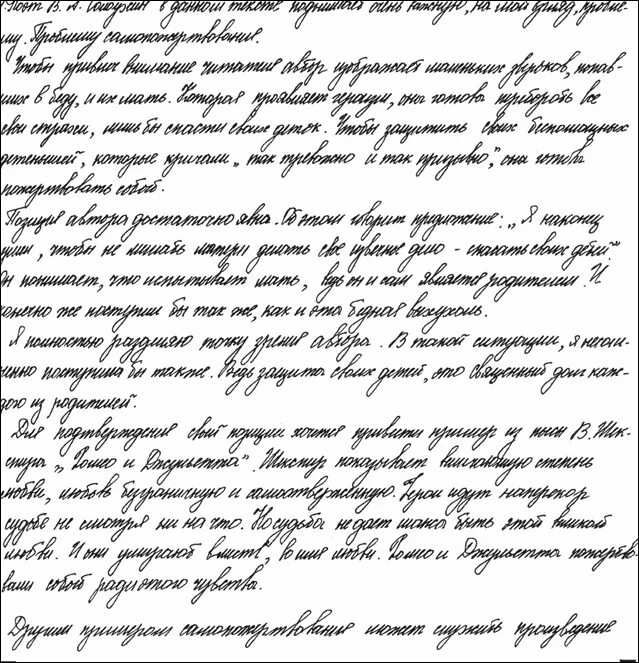 Поэт В. А. Солоухин в данном тексте поднимает очень важную, на мой взгляд, пробле-
му. Проблему самопожертвования.
Чтобы привлечь внимание читателя автор изображает маленьких зверьков, попав-
ших в беду, и их мать. Которая проявляет героизм, она готова перебороть все
свои страхи, лишь бы спасти своих деток. Чтобы защитить своих беспомощных
детенышей, которые кричали „так тревожно и так призывно", она готова
пожертвовать собой.
Позиция автора достаточно явна. Об этом говорит предложение: „Я наконец
ушел, чтобы не мешать матери делать свое извечное дело - спасать своих детей".
Он понимает, что испытывает мать, ведь он и сам является родителем. И
конечно же поступил бы так же, как и эта бедная выхухоль.
Я полностью разделяю точку зрения автора. В такой ситуации, я несом-
ненно поступила бы также. Ведь защита своих детей, это священный долг каж-
дого из родителей.
Для подтверждения своей позиции хочется привести пример из пьесы В. Шек-
спира „Ромео и Джульетта". Шекспир показывает величайшую степень
любви, любовь безграничную и самоотверженную. Герои идут наперекор
судьбе не смотря ни на что. Но судьба не дает шанса быть этой великой
любви. И они умирают вместе, во имя любви. Ромео и Джульетта пожертво-
вали собой ради этого чувства.
Другим примером самопожертвования может служить произведение